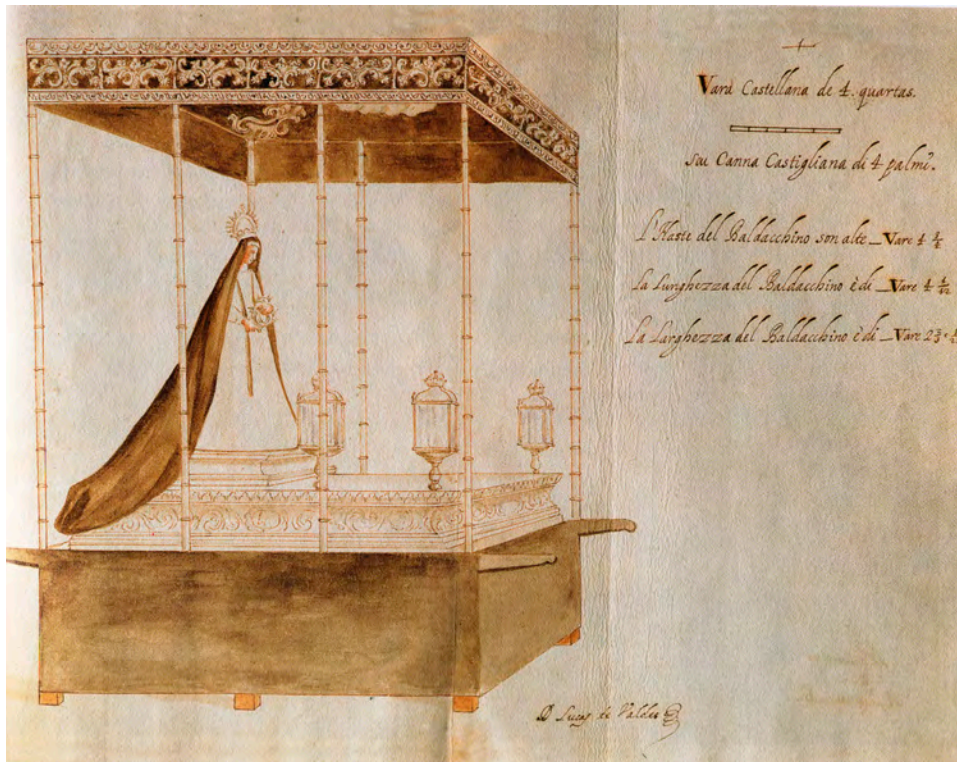 Vara Castellana de 4. quartas.
seu Canna Castigliana di 4 palmi.
L'Haste del Baldacchino son alte _ Vare 4
La Lunghezza del Baldacchino è di _ Vare 4
La Larghezza del Baldacchino è di _ Vare 2
D Lucas de Valdes